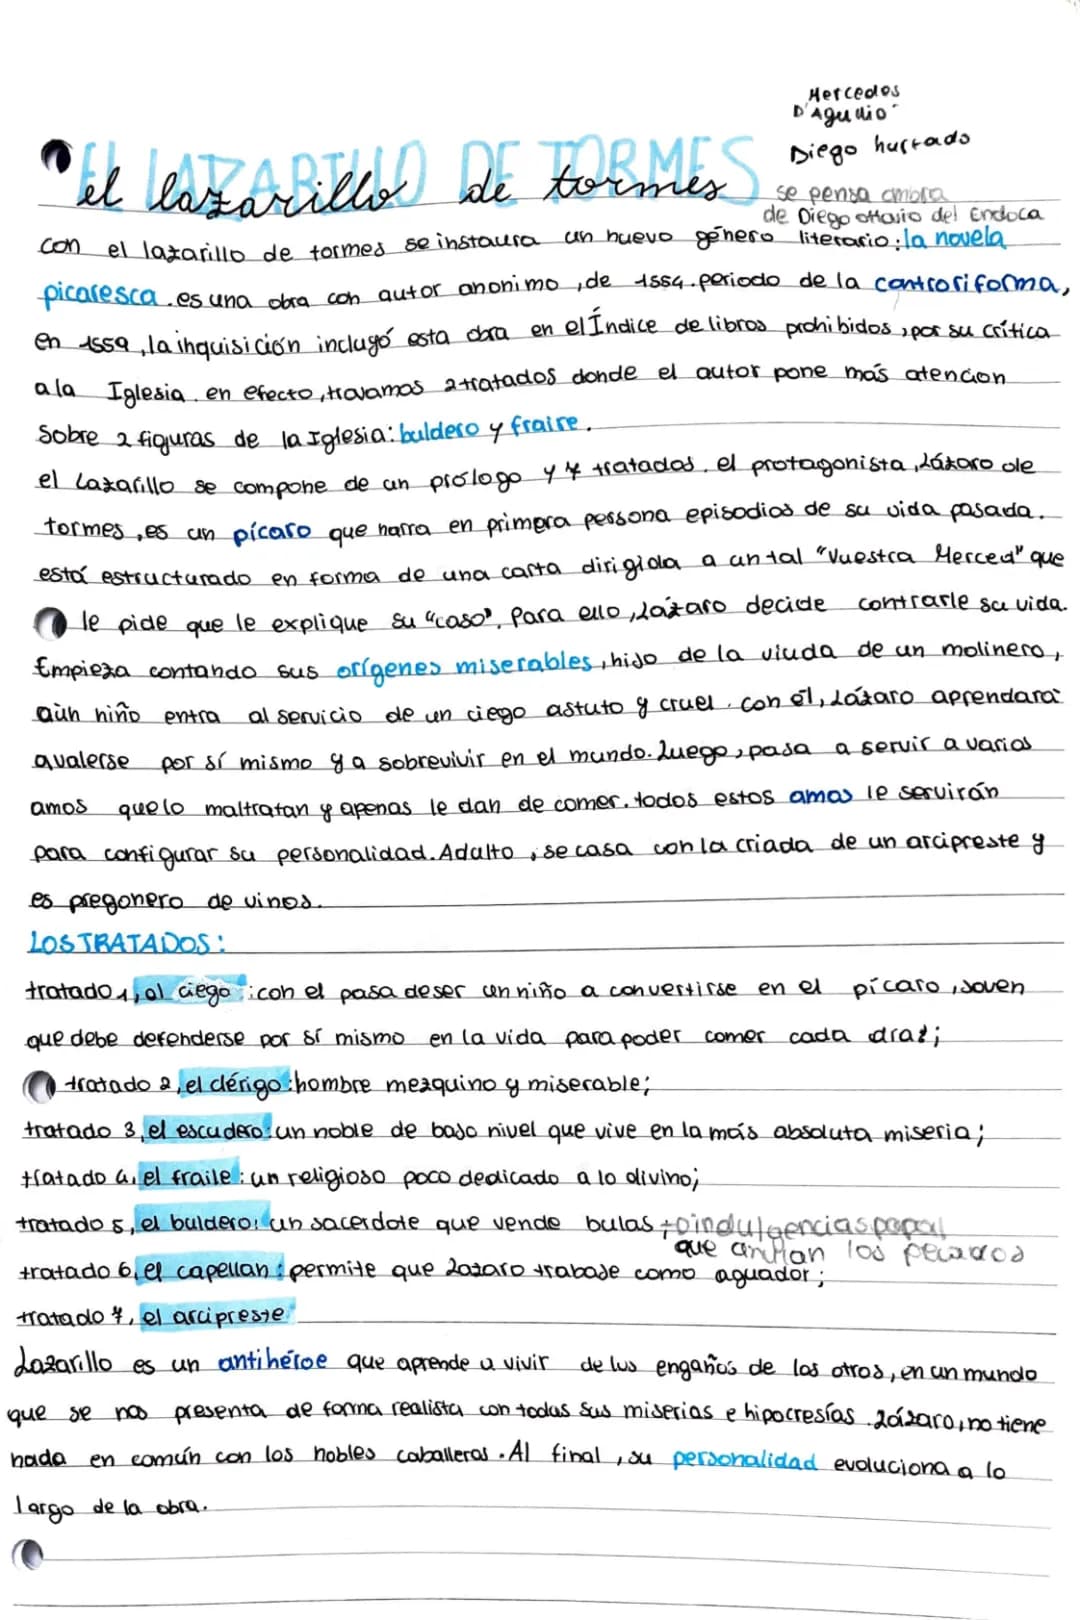 Mercedes
D'Agullio
Diego hurtado
EL LAZARILLO DE TORMES
el lazarillo de tormes
se pensa ambra
de Diego ottavio del Endoca
con el lazarillo de tormes se instaura un nuevo género literario: la novela
picaresca. es una obra con autor anonimo, de 1554. periodo de la controriforma,
en 1559, la inquisición incluyó esta obra en el Índice de libros prohibidos, por su crítica
a la Iglesia. en efecto, travamos 2 tratados donde el autor pone más atencion
sobre 2 figuras de la Iglesia: buldero y fraire.
el Lazarillo se compone de un prólogo y 7 tratados. el protagonista, Lázaro de
tormes, es un pícaro que narra en primera persona episodios de su vida pasada.
está estructurado en forma de una carta dirigida a un tal "Vuestra Merced" que
le pide que le explique su "caso". Para ello, Lázaro decide contrarle su vida.
Empieza contando sus orígenes miserables, hijo de la viuda de un molinero,
aùn niño entra al servicio de un ciego astuto y cruel. con él, Lázaro aprendará
a valerse por sí mismo y a sobrevivir en el mundo. Luego, pasa a servir a varios
amos que lo maltratan y apenas le dan de comer. todos estos amos le servirán
para configurar su personalidad. Adulto, se casa con la criada de un arcipreste y
es pregonero de vinos.
LOS TRATADOS:
tratado 1, al ciego: con el pasa de ser un niño a convertirse en el pícaro, joven
que debe defenderse por sí mismo en la vida para poder comer cada día;
tratado 2, el clérigo: hombre mezquino y miserable;
tratado 3, el escudero: un noble de bajo nivel que vive en la más absoluta miseria;
tratado 4, el fraile: un religioso poco dedicado a lo divino;
tratado 5, el buldero: un sacerdote que vende bulas → indulgencias papal
que los pecados
tratado 6, el capellan: permite que Lazaro trabaje como aguador;
tratado 7, el arcipreste
Lazarillo es un antihéroe que aprende a vivir de los engaños de los otros, en un mundo
que se nos presenta de forma realista con todas sus miserias e hipocresías. Lázaro, no tiene
nada en común con los nobles caballeros. Al final, su personalidad evoluciona a lo
largo de la obra.